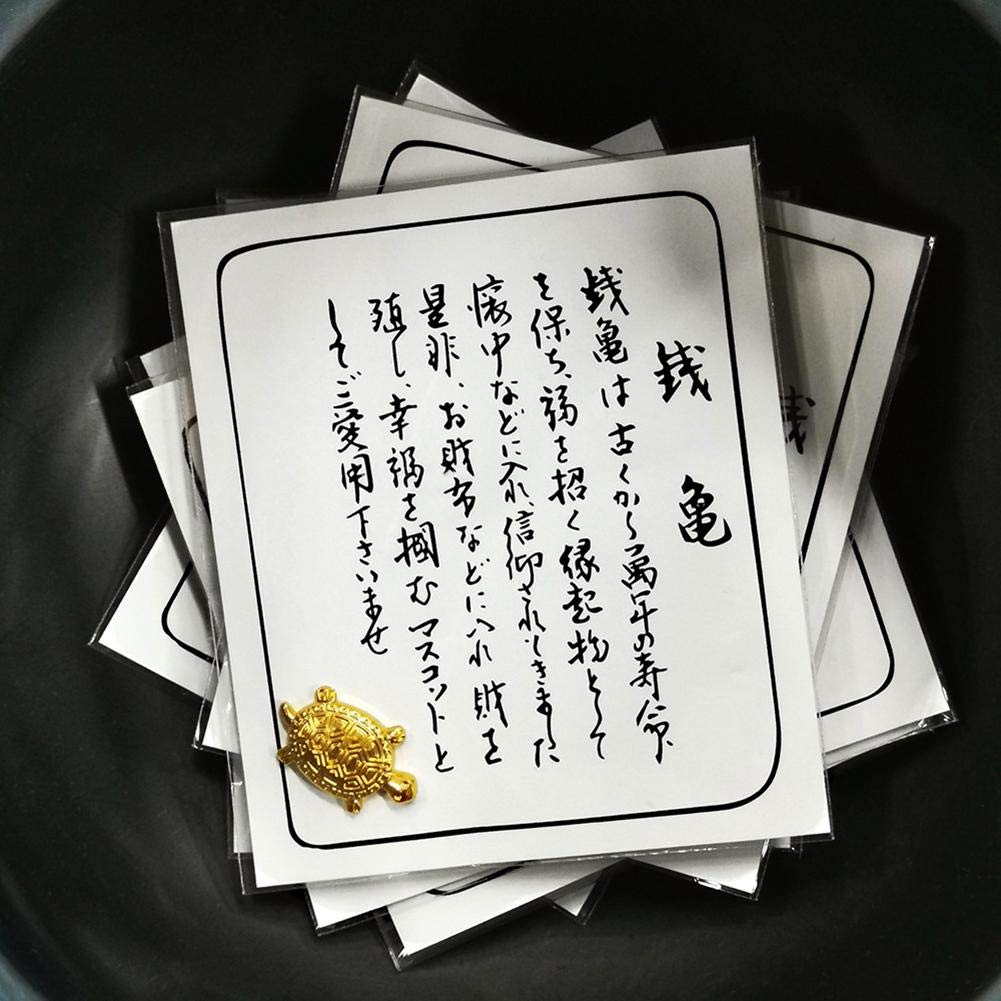 銭亀
銭亀は古くから萬年の寿命
を保ち、福を招く縁起物として
懐中などに入れ、信仰されてきました
是非、お財布などに入れ財を
殖し、幸福を掴むマスコットと
してご愛用下さいませ
銭